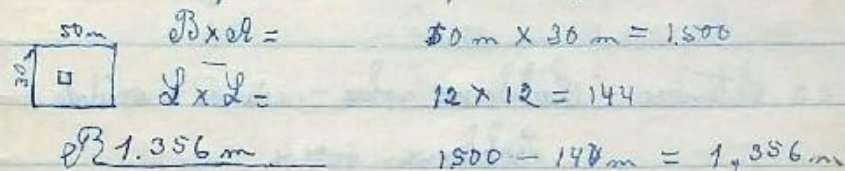 50m B x A = 50 m x 30 m = 1.500
30
L x L = 12 x 12 = 144
R 1.356 m 1500 - 144 m = 1,356 m